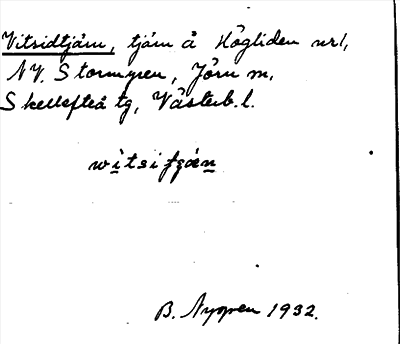 Vitsidtjärn, tjärn å Högliden nr 1,
NV. Stormyren, Jörn sn,
Skellefteå tg, Västerb. l.
wìtsifgän
B. Nygren 1932.